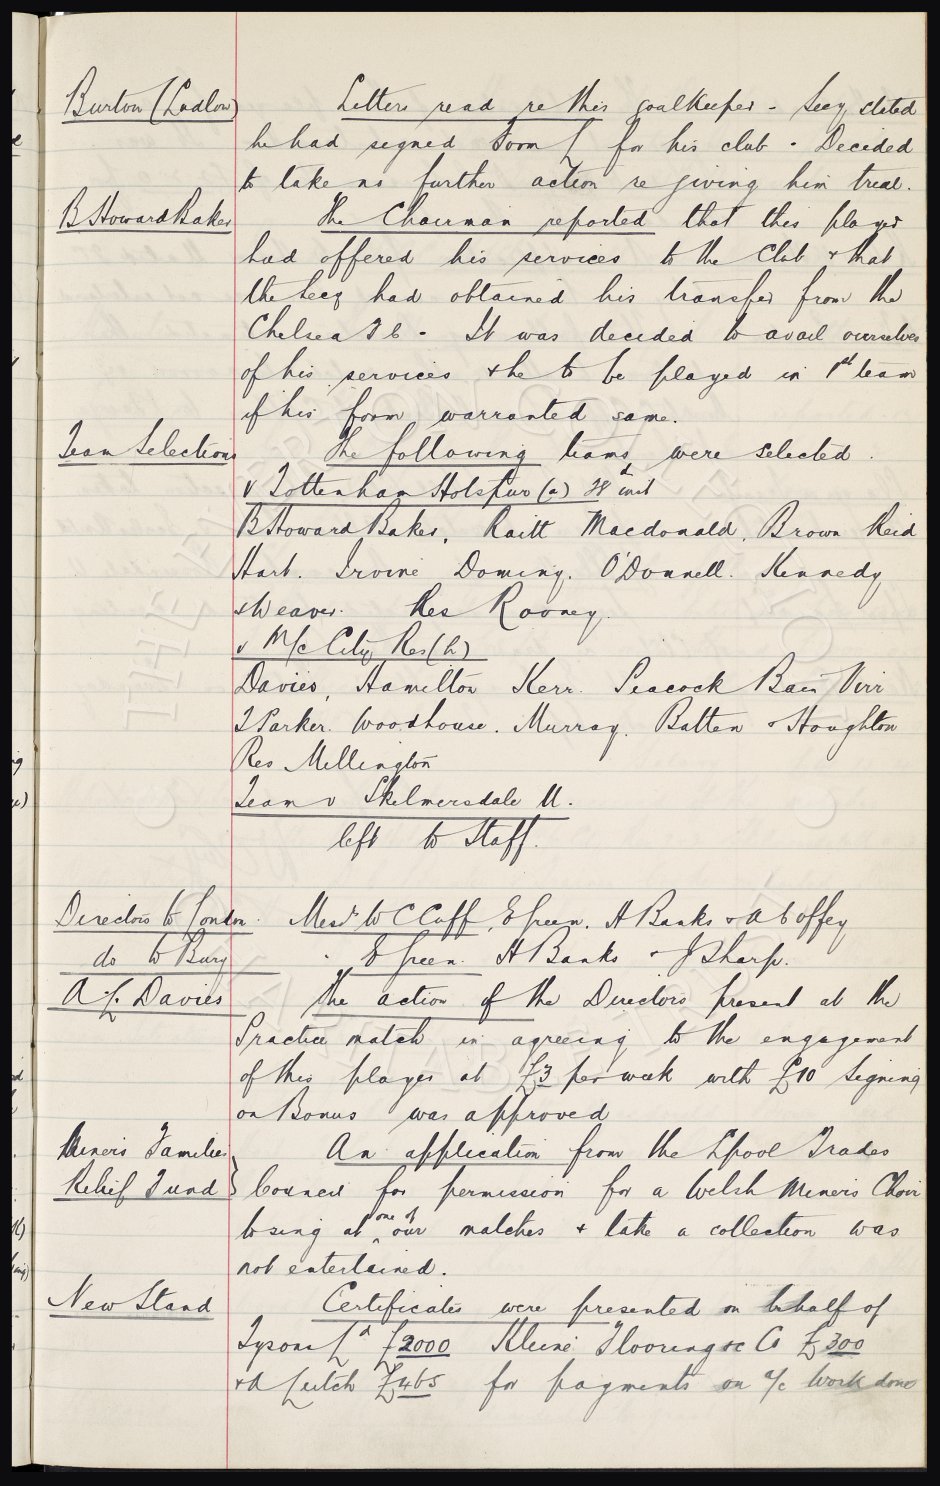 Burton (Ludlow) Letters read re this goalkeeper - Secy stated
he had signed Form L for his club - Decided
to take no further action re giving him trial.
B Howard Baker The Chairman reported that this player
had offered his services to the Club & that
the Secy had obtained his transfer from the
Chelsea F C - It was decided to avail ourselves
of his services & he to be played in 1st team
if his form warranted same.
Team Selections The following teams were selected.
v Tottenham Hotspur (a)
B Howard Baker, Raitt Macdonald, Brown Reid
Hart. Irvine Dominy. O'Donnell. Kennedy
& Weaver. Res Rooney.
v M/c City Res (h)
Davies, Hamilton Kerr. Peacock Bain Virr
T Parker. Woodhouse. Murray. Batten & Houghton
Res Mellington
Team v Skelmersdale U.
left to Staff.
Directors to London. Messrs W C Cuff, E Green, H Banks & A Coffey
do to Bury E Green. H Banks & J Sharp.
A. L. Davies The action of the Directors present at the
Practice match in agreeing to the engagement
of this player at £3 per week with £10 Signing
on Bonus was approved
Miners Families An application from the Lpool Trades
Relief Fund } Council for permission for a Welsh Miners Choir
to sing at one of our matches & take a collection was
not entertained.
New Stand Certificates were presented on behalf of
Tysons Ld £2000 Kleine Flooring &c Co £300
& A Leitch £465 for payments on a/c Work done